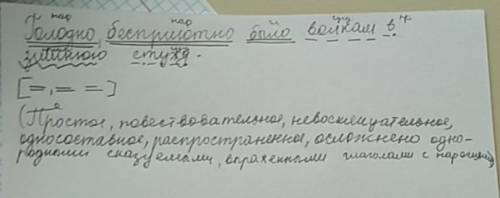 над над и сущ
Голодно, бесприютно было волкам в
зимнюю стужу.
[=, = =]
(Простое, повествовательное, невосклицательное,
односоставное, распространенное, осложнено одно-
родными сказуемыми, выраженными глаголами с наречиями